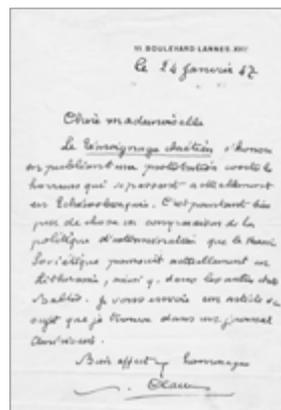 BOULEVARD LANNES. XVIe
le 24 Janvier 47
Chère mademoiselle
Le Témoignage chrétien s'honore
en publiant une protestation contre les
horreurs qui se passent actuellement
en C'est pourtant bien
peu de chose en comparaison de la
politique d'extermination que la Russie
Soviétique poursuit actuellement en
Lithuanie, ainsi q. dans les autres états
Baltes. Je vous envoie un article à ce
sujet que je trouve dans un journal
Américain.
Bien affect hommages